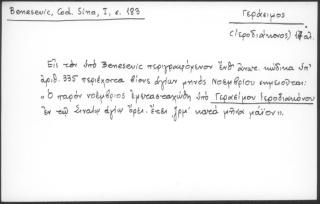 Benesevic, Cod. Sina, I, σ. 183
Γεράσιμος
(Ἱεροδιάκονος) 17 αἰ.
Εἰς τὸν ὑπὸ Benesevic περιγραφόμενον ἔνθ' ἀνωτ. κώδικα ὑπ'
ἀριθ. 335 περιέχοντα βίους ἁγίων μηνὸς Νοεμβρίου σημειοῦται:
"Ὁ παρὸν νοέμβριος ὑπὸ Γερασίμου Ἱεροδιακόνου
ἐν τῷ Σιναίῳ ἁγίῳ ὄρει. ἔτει ζρμ' κατὰ μῆνα μάϊον".